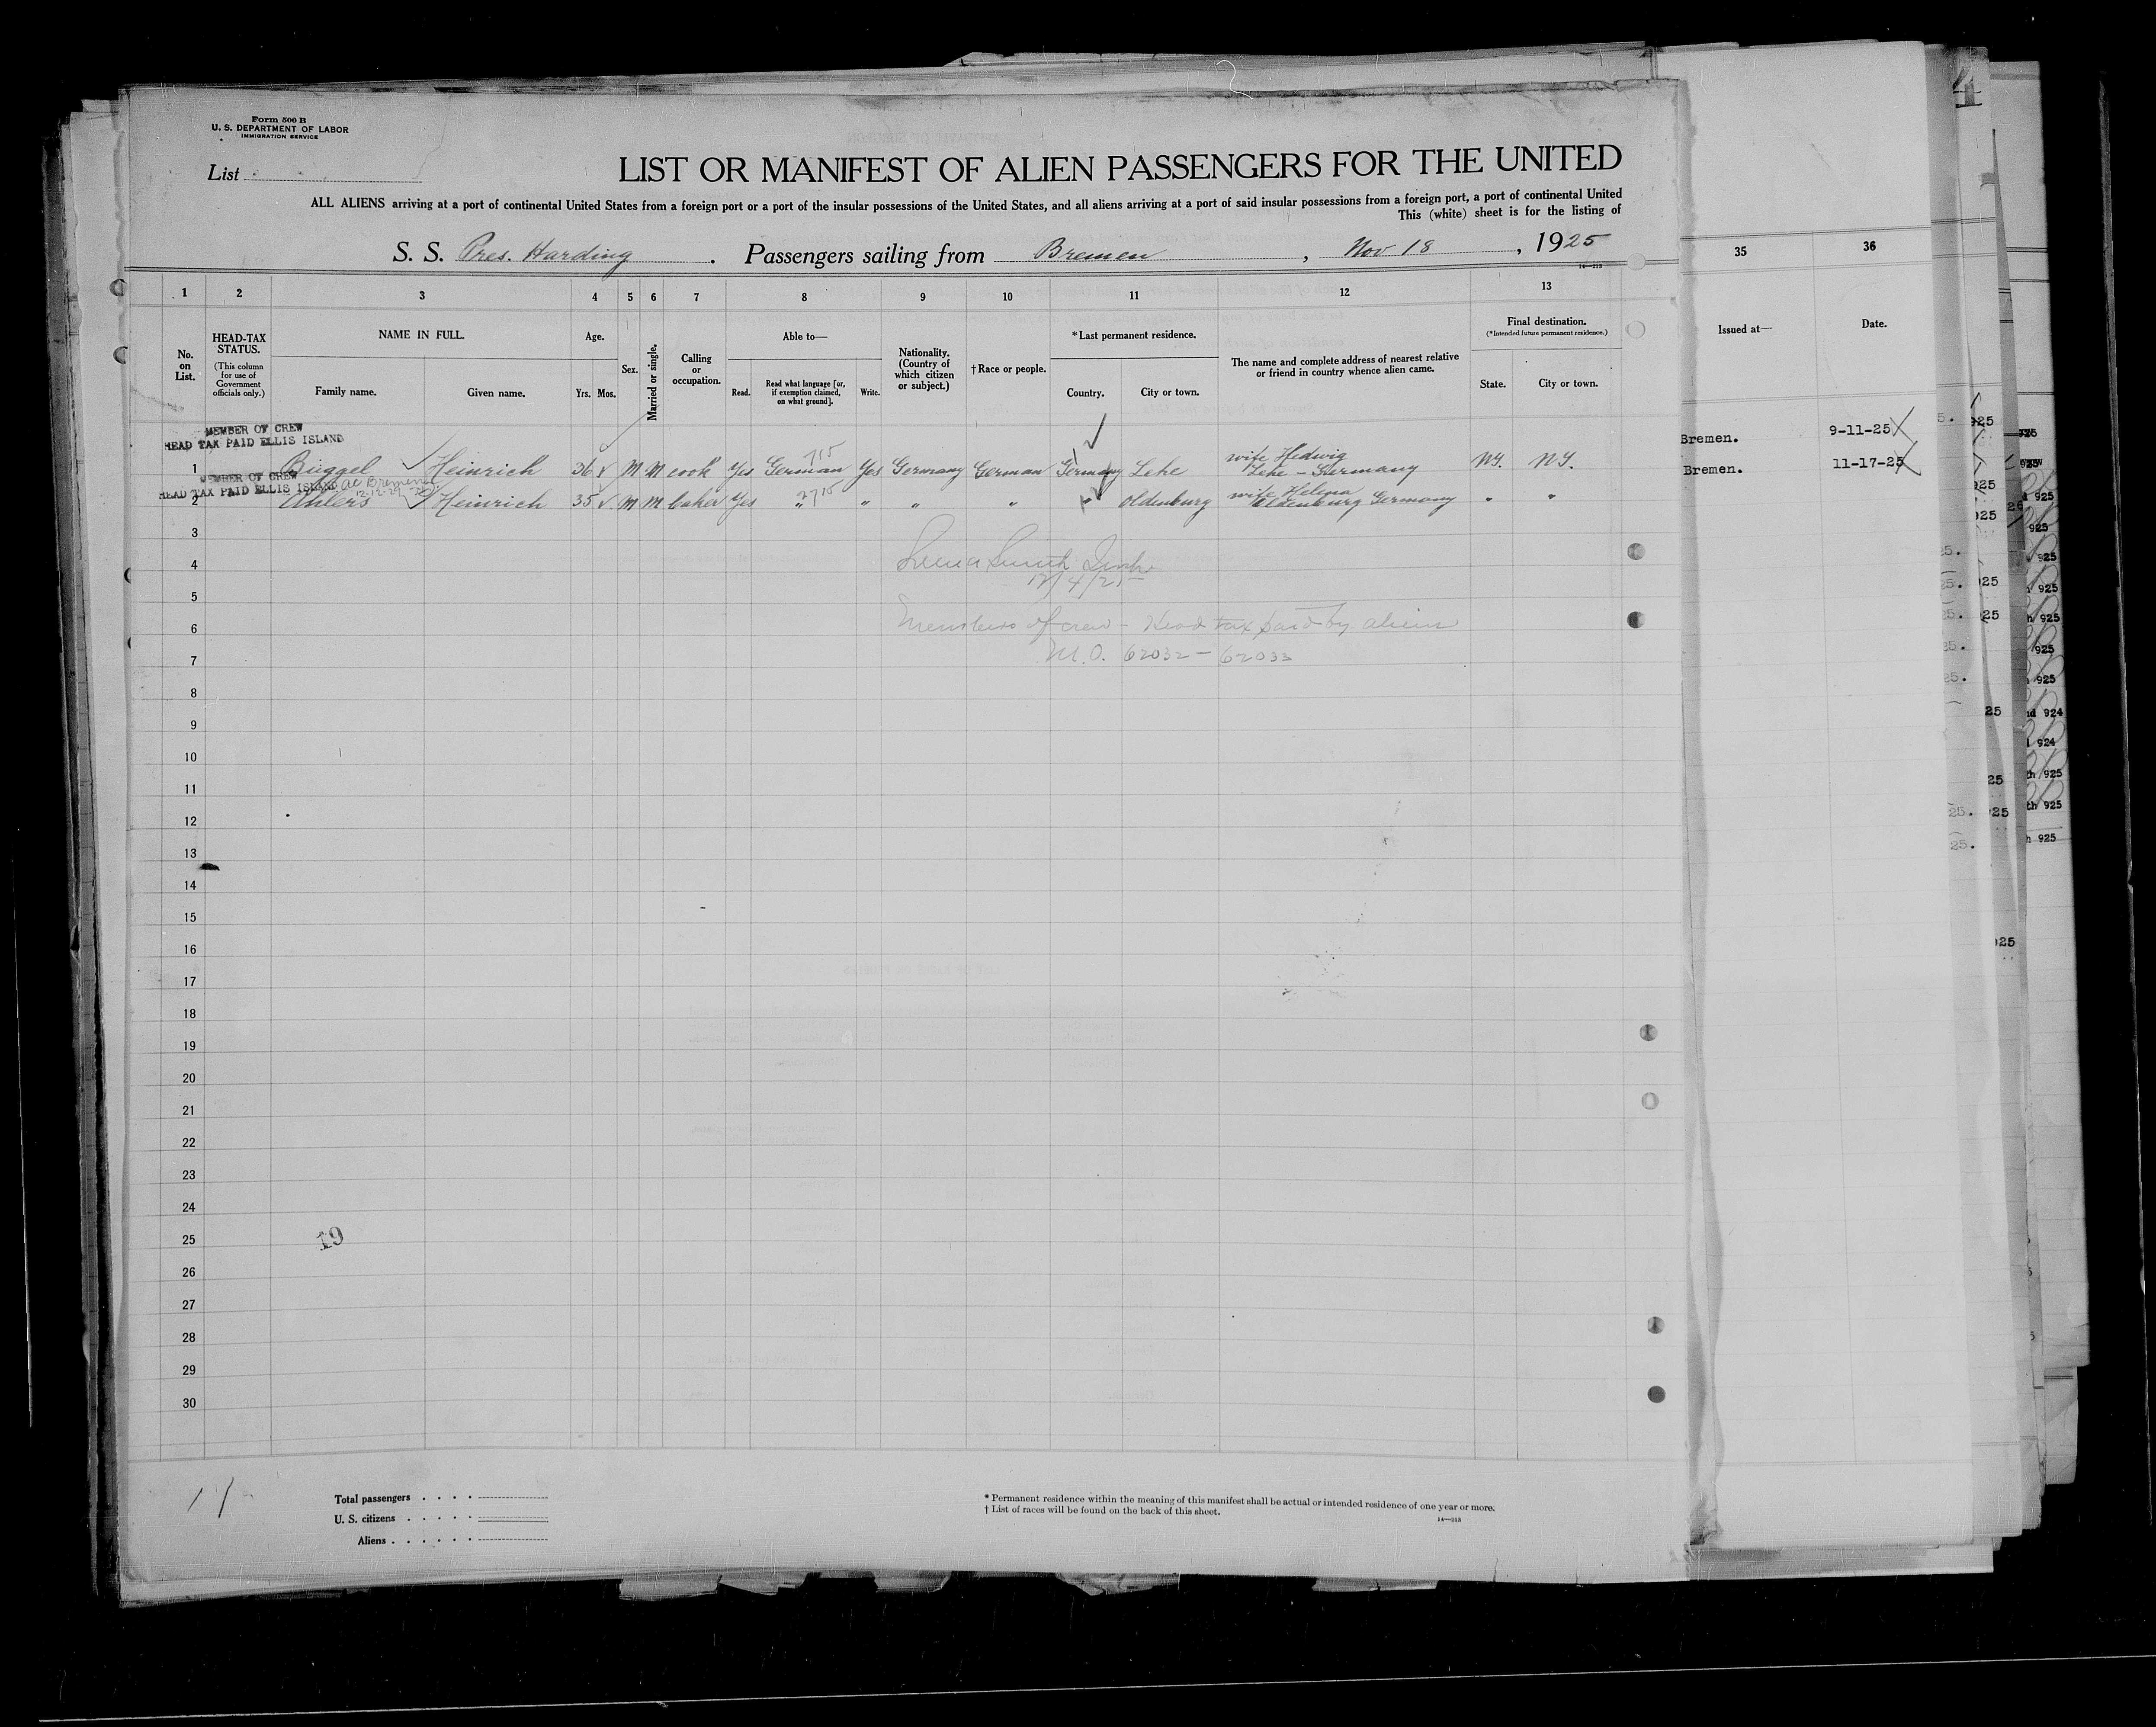 Form 500 B
U. S. DEPARTMENT OF LABOR
IMMIGRATION SERVICE
List
LIST OR MANIFEST OF ALIEN PASSENGERS FOR THE UNITED
ALL ALIENS arriving at a port of continental United States from a foreign port or a port of the insular possessions of the United States, and all aliens arriving at a port of said insular possessions from a foreign port, a port of continental United
This (white) sheet is for the listing of
S. S. Pres. Harding . Passengers sailing from Bremen , Nov 18 , 1925
14—213
1 2 3 4 5 6 7 8 9 10 11 12 13
No. on List.
HEAD-TAX STATUS.
(This column for use of Government officials only.)
NAME IN FULL.
Family name. Given name.
Age.
Yrs. Mos.
Sex.
Married or single.
Calling or occupation.
Able to—
Read. Read what language [or, if exemption claimed, on what ground]. Write.
Nationality. (Country of which citizen or subject.)
†Race or people.
*Last permanent residence.
Country. City or town.
The name and complete address of nearest relative or friend in country whence alien came.
Final destination.
(*Intended future permanent residence.)
State. City or town.
35 36
Issued at— Date.
MEMBER OF CREW
HEAD TAX PAID ELLIS ISLAND
1 Büggel Heinrich 36 M M cook Yes German Yes Germany German Germany Lehe wife Hedwig Lehe - Germany N.Y. N.Y.
Bremen. 9-11-25
MEMBER OF CREW
HEAD TAX PAID ELLIS ISLAND
2 Ahlers Heinrich 35 M M baker Yes " " " " Oldenburg wife Helena Oldenburg Germany " "
Bremen. 11-17-25
3
4
12/4/25
5
6 Members of crew - Head tax paid by aliens
7 M.O. 62032 - 62033
8
9
10
11
12
13
14
15
16
17
18
19
20
21
22
23
24
25
19
26
27
28
29
30
Total passengers
U. S. citizens
Aliens
* Permanent residence within the meaning of this manifest shall be actual or intended residence of one year or more.
† List of races will be found on the back of this sheet.
14—213